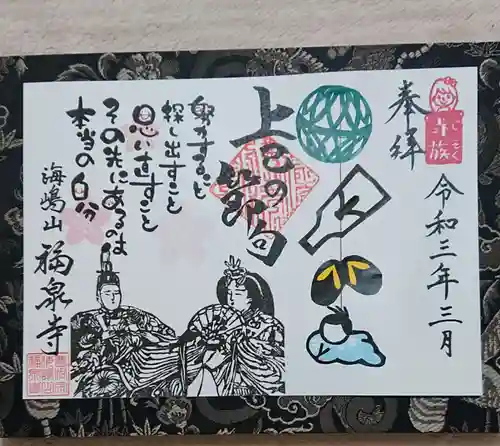 奉拝
令和三年三月
上巳の節句
探し出すこと
思い直すこと
その先にあるのは
本当の自分
海嶋山
福泉寺